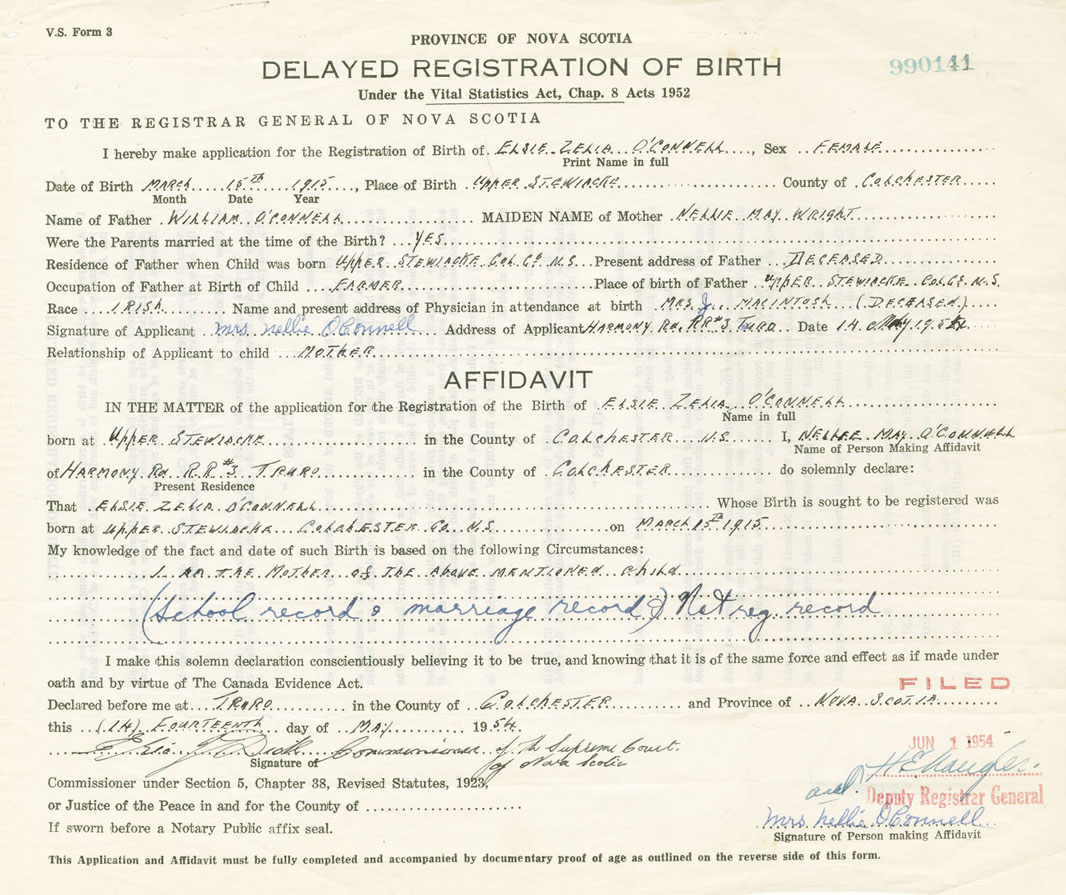 V.S. Form 3
PROVINCE OF NOVA SCOTIA
DELAYED REGISTRATION OF BIRTH
990141
Under the Vital Statistics Act, Chap. 8 Acts 1952
TO THE REGISTRAR GENERAL OF NOVA SCOTIA
I hereby make application for the Registration of Birth of ELSIE ZELIA O'CONNELL, Sex FEMALE
Print Name in full
Date of Birth MARCH 15TH 1915, Place of Birth UPPER STEWIACKE County of COLCHESTER
Month Date Year
Name of Father WILLIAM O'CONNELL MAIDEN NAME of Mother NELLIE MAY WRIGHT
Were the Parents married at the time of the Birth? YES
Residence of Father when Child was born UPPER STEWIACKE COL. Co. N.S. Present address of Father DECEASED
Occupation of Father at Birth of Child FARMER Place of birth of Father UPPER STEWIACKE COL Co. N.S.
Race IRISH Name and present address of Physician in attendance at birth MRS. J. MACINTOSH (DECEASED)
Signature of Applicant Mrs Nellie O'Connell Address of Applicant HARMONY RD. RR#3 TRURO Date 14 MAY 1954
Relationship of Applicant to child MOTHER
AFFIDAVIT
IN THE MATTER of the application for the Registration of the Birth of ELSIE ZELIA O'CONNELL
Name in full
born at UPPER STEWIACKE in the County of COLCHESTER N.S. I, NELLIE MAY O'CONNELL
Name of Person Making Affidavit
of HARMONY RD R.R #3 TRURO in the County of COLCHESTER do solemnly declare:
Present Residence
That ELSIE ZELIA O'CONNELL Whose Birth is sought to be registered was
born at UPPER STEWIACKE COLCHESTER Co. N.S. on MARCH 15TH 1915
My knowledge of the fact and date of such Birth is based on the following Circumstances:
I AM THE MOTHER OF THE ABOVE MENTIONED CHILD
(School record & marriage record) Not reg. record
I make this solemn declaration conscientiously believing it to be true, and knowing that it is of the same force and effect as if made under
oath and by virtue of The Canada Evidence Act.
FILED
Declared before me at TRURO in the County of COLCHESTER and Province of NOVA SCOTIA
this (14) FOURTEENTH day of MAY 1954.
JUN 1 1954
Commissioner of the Supreme Court
of Nova Scotia
Signature of
Commissioner under Section 5, Chapter 38, Revised Statutes, 1923,
Deputy Registrar General
or Justice of the Peace in and for the County of
Mrs Nellie O'Connell
If sworn before a Notary Public affix seal.
Signature of Person making Affidavit
This Application and Affidavit must be fully completed and accompanied by documentary proof of age as outlined on the reverse side of this form.